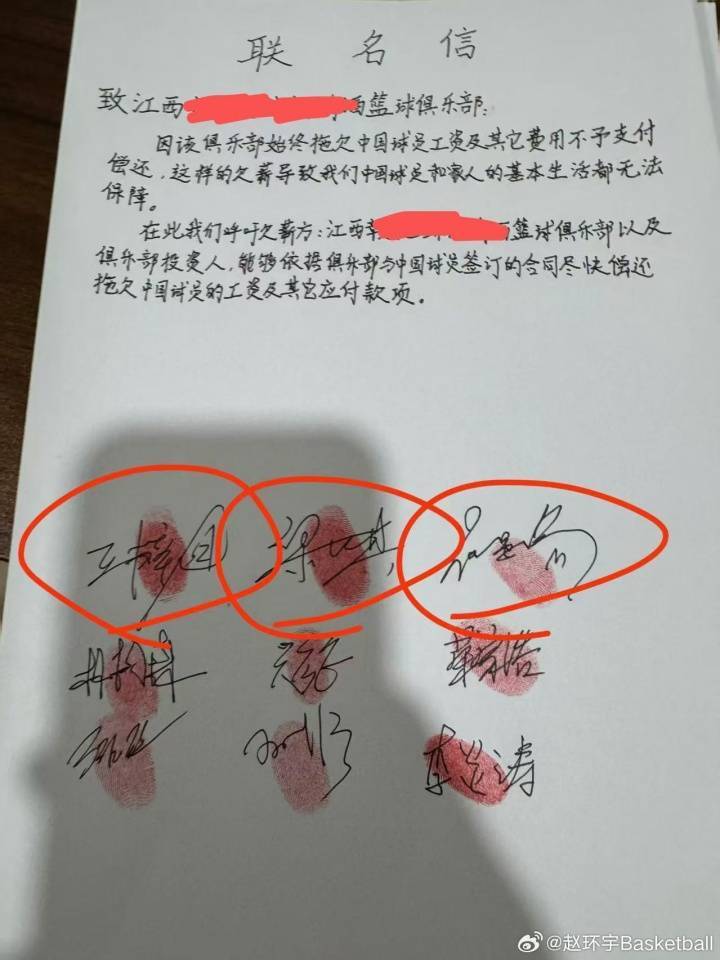 联 名 信
致江西 篮球俱乐部:
因该俱乐部始终拖欠中国球员工资及其它费用不予支付
偿还,这样的欠薪导致我们中国球员和家人的基本生活都无法
保障。
在此我们呼吁欠薪方:江西 篮球俱乐部以及
俱乐部投资人,能够依据俱乐部与中国球员签订的合同尽快偿还
拖欠中国球员的工资及其它应付款项。
@赵环宇Basketball